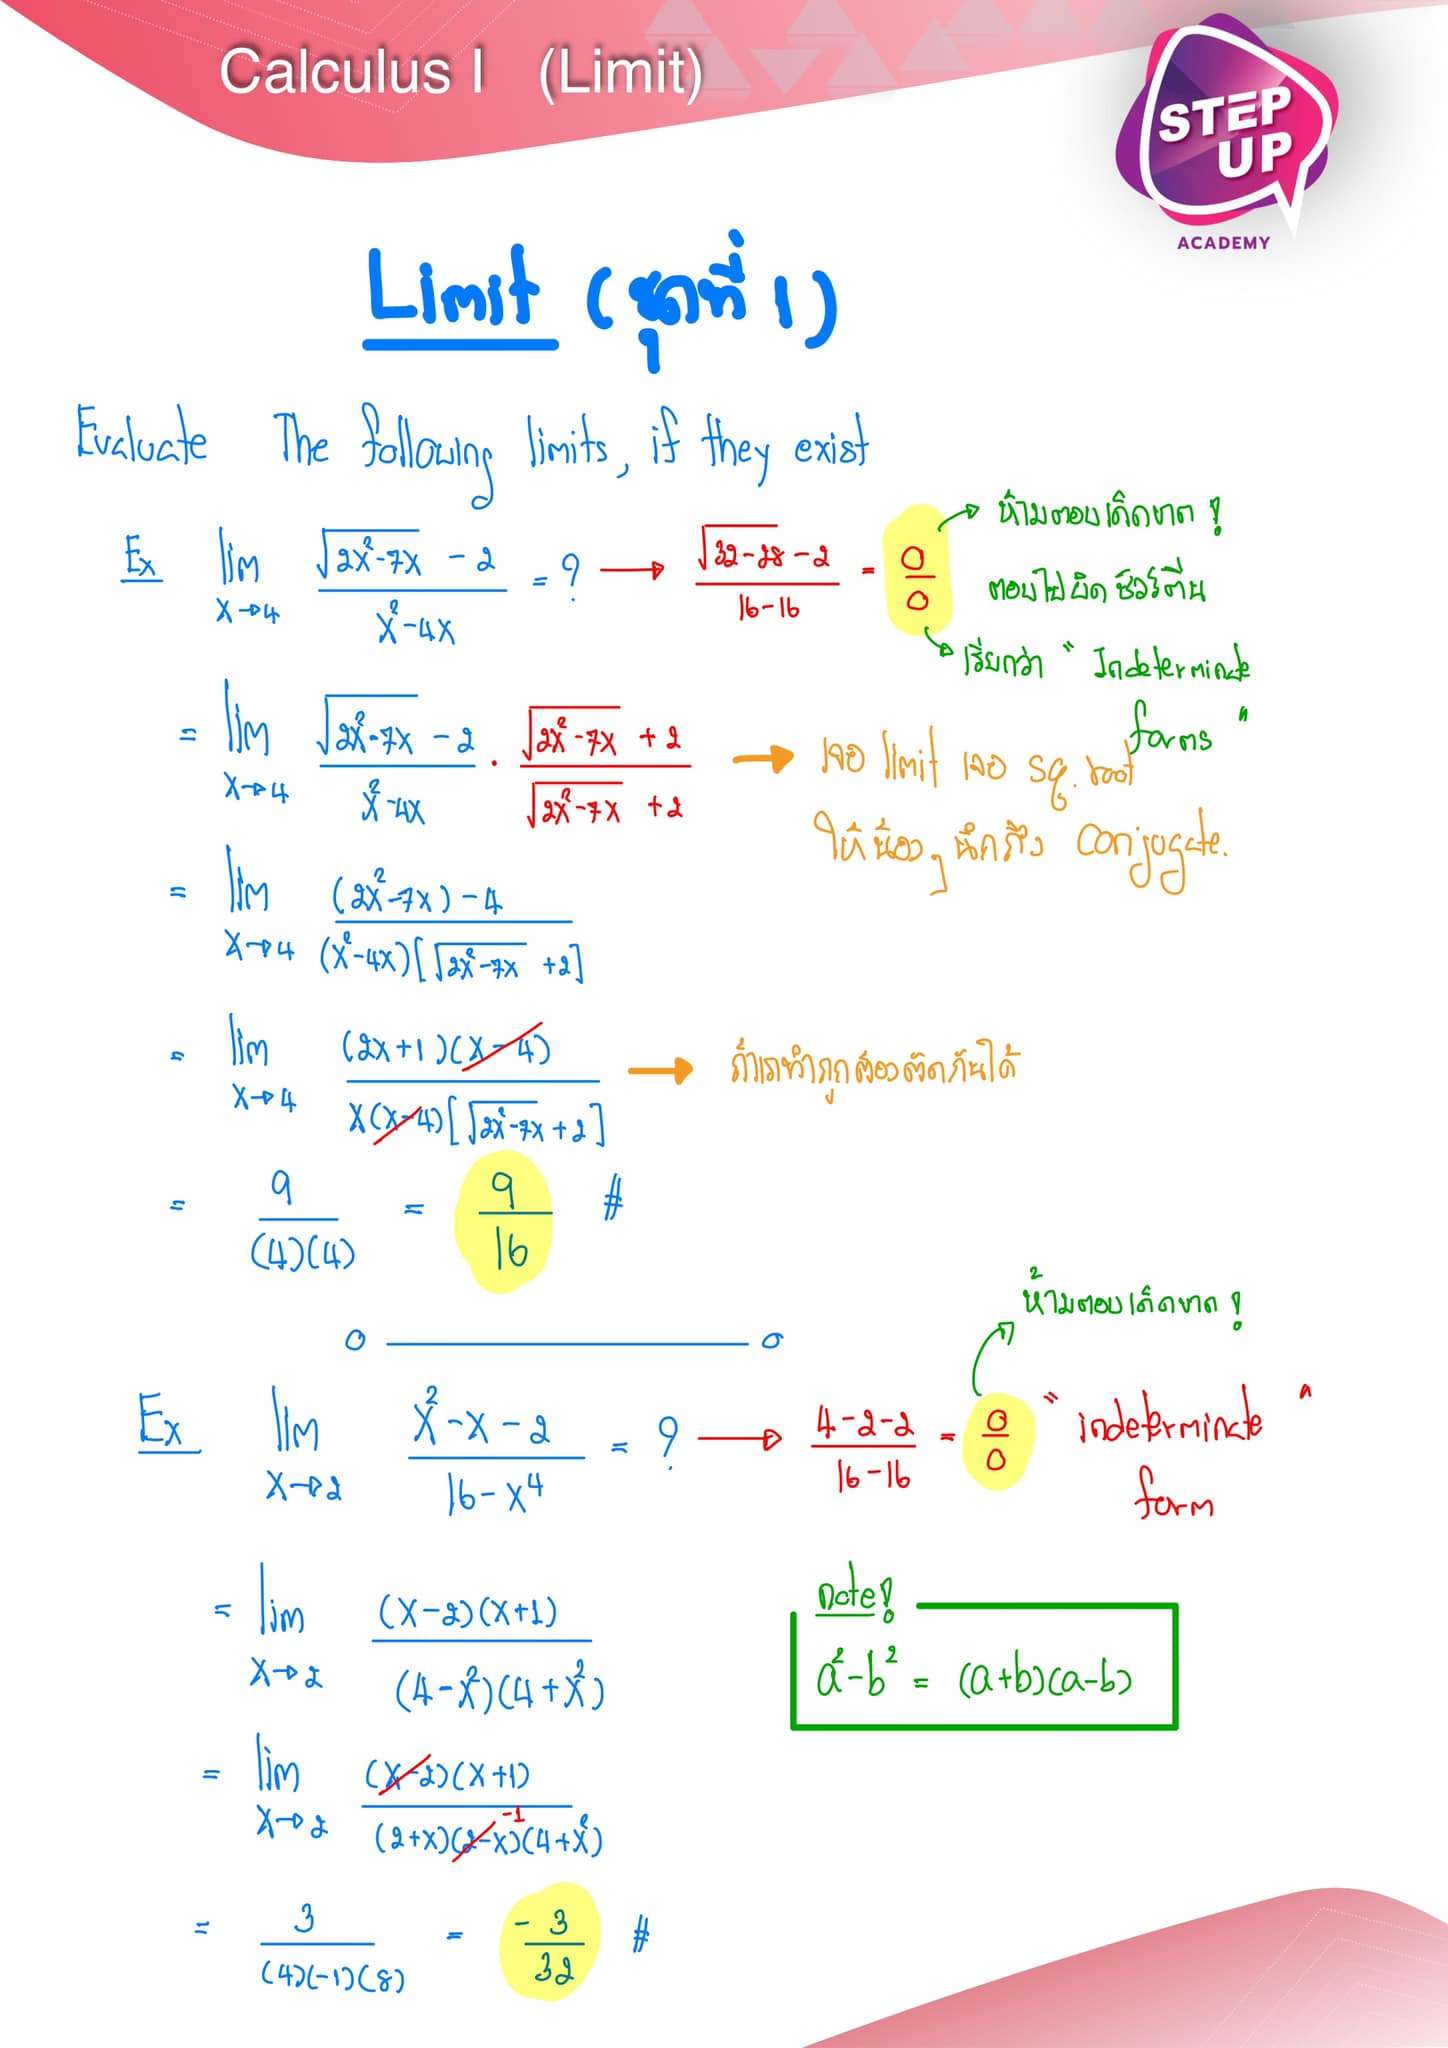 Calculus I (Limit)
STEP
UP
ACADEMY
Limit (ชุดที่ 1)
Evaluate The following limits, if they exist
Ex lim x→4 (√(2x²-7x) - 2)/(x²-4x) = ? → (√(32-28) - 2)/(16-16) = 0/0
ห้ามตอบเด็ดขาด !
ตอบไปผิดชัวร์ตีน
เรียกว่า "Indeterminate
forms"
= lim x→4 (√(2x²-7x) - 2)/(x²-4x) · (√(2x²-7x) + 2)/(√(2x²-7x) + 2)
→ เจอ limit เจอ sq. root
ให้น้องๆ นึกถึง conjugate.
= lim x→4 ((2x²-7x) - 4)/((x²-4x)[√(2x²-7x) + 2])
= lim x→4 ((2x+1)(x-4))/(x(x-4)[√(2x²-7x) + 2]) → ถ้าเราทำถูกต้องตัดกันได้
= 9/((4)(4)) = 9/16 #
ห้ามตอบเด็ดขาด !
Ex lim x→2 (x²-x-2)/(16-x⁴) = ? → (4-2-2)/(16-16) = 0/0 "indeterminate"
form
= lim x→2 ((x-2)(x+1))/((4-x²)(4+x²))
note!
a²-b² = (a+b)(a-b)
= lim x→2 ((x-2)(x+1))/((2+x)(2-x)(4+x²)) -1
= 3/((4)(-1)(8)) = -3/32 #